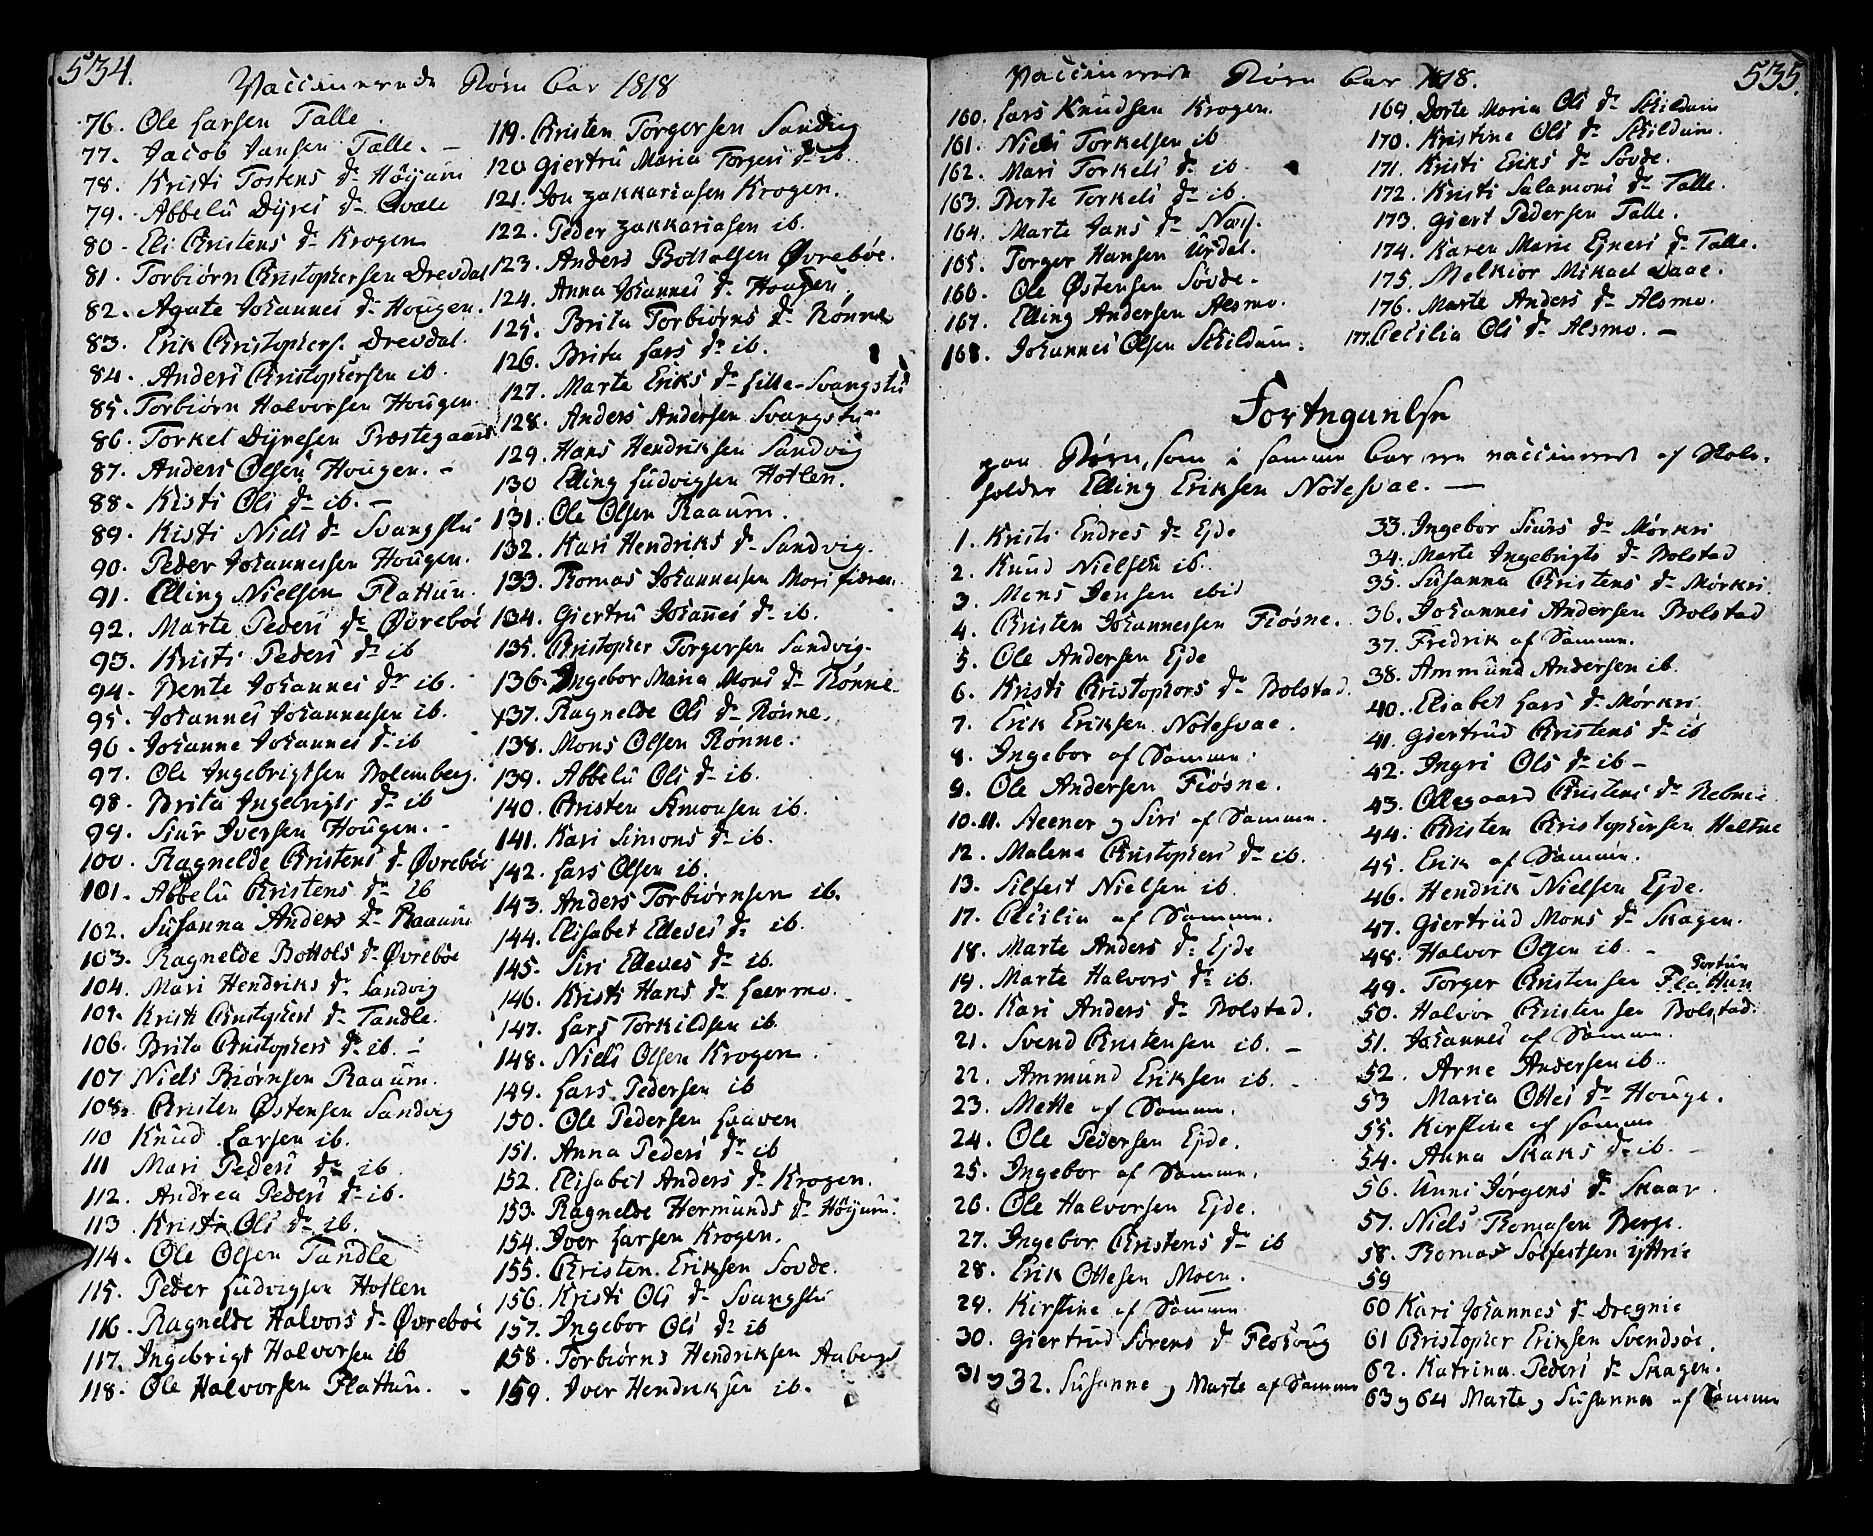 534.
Vaccinerede Børn Aar 1818
76. Ole Larsen Talle.
77. Jacob Jansen Talle. –
78. Kristi Tostens dr Høyum
79. Abbelu Dyres dr Qvale
80. Eli Christens dr Krogen
81. Torbiørn Christophersen Drevdal
82. Agate Johannes dr Hougen.
83. Erik Christophers. Drevdal.
84. Anders Christophersen ib.
85. Torbiørn Halvorsen Hougen.
86. Torkel Dyresen Præstegaard
87. Anders Olsen Hougen. –
88. Kisti Ols dr ib. –
89. Kisti Niels dr Svangstu
90. Peder Johannessen Hougen.
91. Elling Nielsen Flattun.
92. Marte Peders dr Øvrebøe
93. Kristi Peders dr ib
94. Bente Johannes dr ib.
95. Johannes Johannessen ib.
96. Johanne Johannes dr ib
97. Ole Ingebrigtsen Bolemberg.
98. Brita Ingebrigts dr ib
99. Siur Iversen Hougen. –
100. Ragnelde Christens dr Øvrebøe
101. Abbelu Christens dr ib
102. Susanna Anders dr Raaum
103. Ragnelde Bottols dr Øvrebøe
104. Mari Hendriks dr Sandvig
105. Kristi Christophers dr Tandle.
106. Brita Christophers dr ib. –
107 Niels Biørnsen Raaum.
108. Christen Østensen Sandvig
110 Knud Larsen ib.
111 Mari Peders dr ib.
112. Andrea Peders dr ib.
113 Kristi Ols dr ib.
114. Ole Olsen Tandle
115. Peder Ludvigsen Hotlen
116. Ragnelde Halvors dr Øvrebøe
117. Ingebrigt Halvorsen ib
118. Ole Halvorsen Flattun.
119. Christen Torgersen Sandvig
120 Giertru Maria Torgers dr ib.
121. Jon Zakkariasen Krogen.
122. Peder Zakkariasen ib.
123. Anders Bottolsen Øvrebøe.
124. Anna Johannes dr Hougen.
125. Brita Torbiørns dr Rønne
126. Brita Lars dr ib.
127. Marte Eriks dr Lille-Svangstu
128. Anders Andersen Svangstu
129. Hans Hendriksen Sandvig
130 Elling Ludvigsen Hotlen.
131. Ole Olsen Raaum.
132. Kari Hendriks dr Sandvig.
133. Thomas Johannessen Morifiæren.
134. Giertru Johannes dr ib.
135. Christopher Torgersen Sandvig.
136. Ingebor Maria Mons dr Rønne.
137. Ragnelde Ols dr Rønne.
138. Mons Olsen Rønne.
139. Abbelu Ols dr ib.
140. Christen Simonsen ib.
141. Kari Simons dr ib.
142. Lars Olsen ib.
143. Anders Torbiørnsen ib.
144. Elisabet Elleves dr ib.
145. Siri Elleves dr ib.
146. Kristi Hans dr Leermo.
147. Lars Torkildsen ib
148. Niels Olsen Krogen.
149. Lars Pedersen ib
150. Ole Pedersen Haaven
151. Anna Peders dr ib
152. Elisabet Anders dr Krogen.
153. Ragnelde Hermunds dr Høyum.
154. Iver Larsen Krogen.
155. Christen Eriksen Sovde.
156. Kristi Ols dr Svangstu
157. Ingebor Ols dr ib
158. Torbiørn Hendriksen Aaberge
159. Iver Hendriksen ib.
535.
Vaccinerede Børn Aar 1818.
160. Lars Knudsen Krogen.
161. Niels Torkelsen ib
162. Mari Torkels dr ib.
163. Berte Torkels dr ib.
164. Marte Jans dr Næs.
165. Torger Hansen Urdal.
166. Ole Østensen Sovde.
167. Elling Andersen Alsmo.
168. Johannes Olsen Skildum.
169. Dorte Maria Ols dr Skildum
170. Kristine Ols dr Skildum.
171. Kristi Eriks dr Sovde.
172. Kristi Salamons dr Talle.
173. Giert Pedersen Talle.
174. Karen Marie Ejners dr Talle.
175. Melkior Mikael Daae.
176. Marte Anders dr Alsmo.
177. Cecilia Ols dr Alsmo. –
Fortegnelse
paa Børn, som i samme Aar ere vaccinerede af Skole-
holder Elling Eriksen Notesvae. –
1. Kristi Endres dr Ejde
2. Knud Nielsen ib.
3. Mons Jensen ibid
4. Christen Johannessen Fiøsne.
5. Ole Andersen Ejde
6. Kristi Christophers dr Bolstad.
7. Erik Eriksen Notesvae.
8. Ingebor af Samme.
9. Ole Andersen Fiøsne.
10. 11. Steener og Siri af Samme.
12. Malena Christophers dr ib.
13. Silfest Nielsen ib.
17. Cecilia af Samme.
18. Marte Anders dr Ejde
19. Marte Halvors dr ib.
20. Kari Anders dr Bolstad.
21. Svend Christensen ib. –
22. Ammund Eriksen ib. –
23. Mette af Samme.
24. Ole Pedersen Ejde.
25. Ingebor af Samme.
26. Ole Halvorsen Ejde.
27. Ingebor Christens dr ib
28. Erik Ottesen Moen.
29. Kirstine af Samme
30. Giertrud Sørens dr Flohoug
31 og 32. Susanne og Marte af Samme
33. Ingebor Siurs dr Mørkri
34. Marte Ingebrigts dr Bolstad
35. Susanna Christens dr Mørkri.
36. Johannes Andersen Bolstad
37. Fredrik af Samme.
38. Ammund Andersen ib.
40. Elisabet Lars dr Mørkri
41. Giertrud Christens dr ib
42. Ingri Ols dr ib –
43. Ollegaard Christens dr Nebnie
44. Christen Christophersen Heltne
45. Erik af Samme.
46. Hendrik Nielsen Ejde.
47. Giertrud Mons dr Skagen.
48. Halvor Olsen ib. –
49. Torger Christensen Flattun Fortun
50. Halvor Christensen Bolstad.
51. Johannes af Samme.
52. Arne Andersen ib.
53 Maria Ottes dr Houge.
55. Kirstine af samme
54. Anna Skaks dr ib. –
56. Unni Jørgens dr Skaar.
57. Niels Thomasen Berge.
58. Thomas Solfestsen Yttrie
59
60 Kari Johannes dr Dregnie
61 Christopher Eriksen Svendsøe.
62. Katrina Peders dr Skagen.
63 og 64 Marte og Susanna af Samme